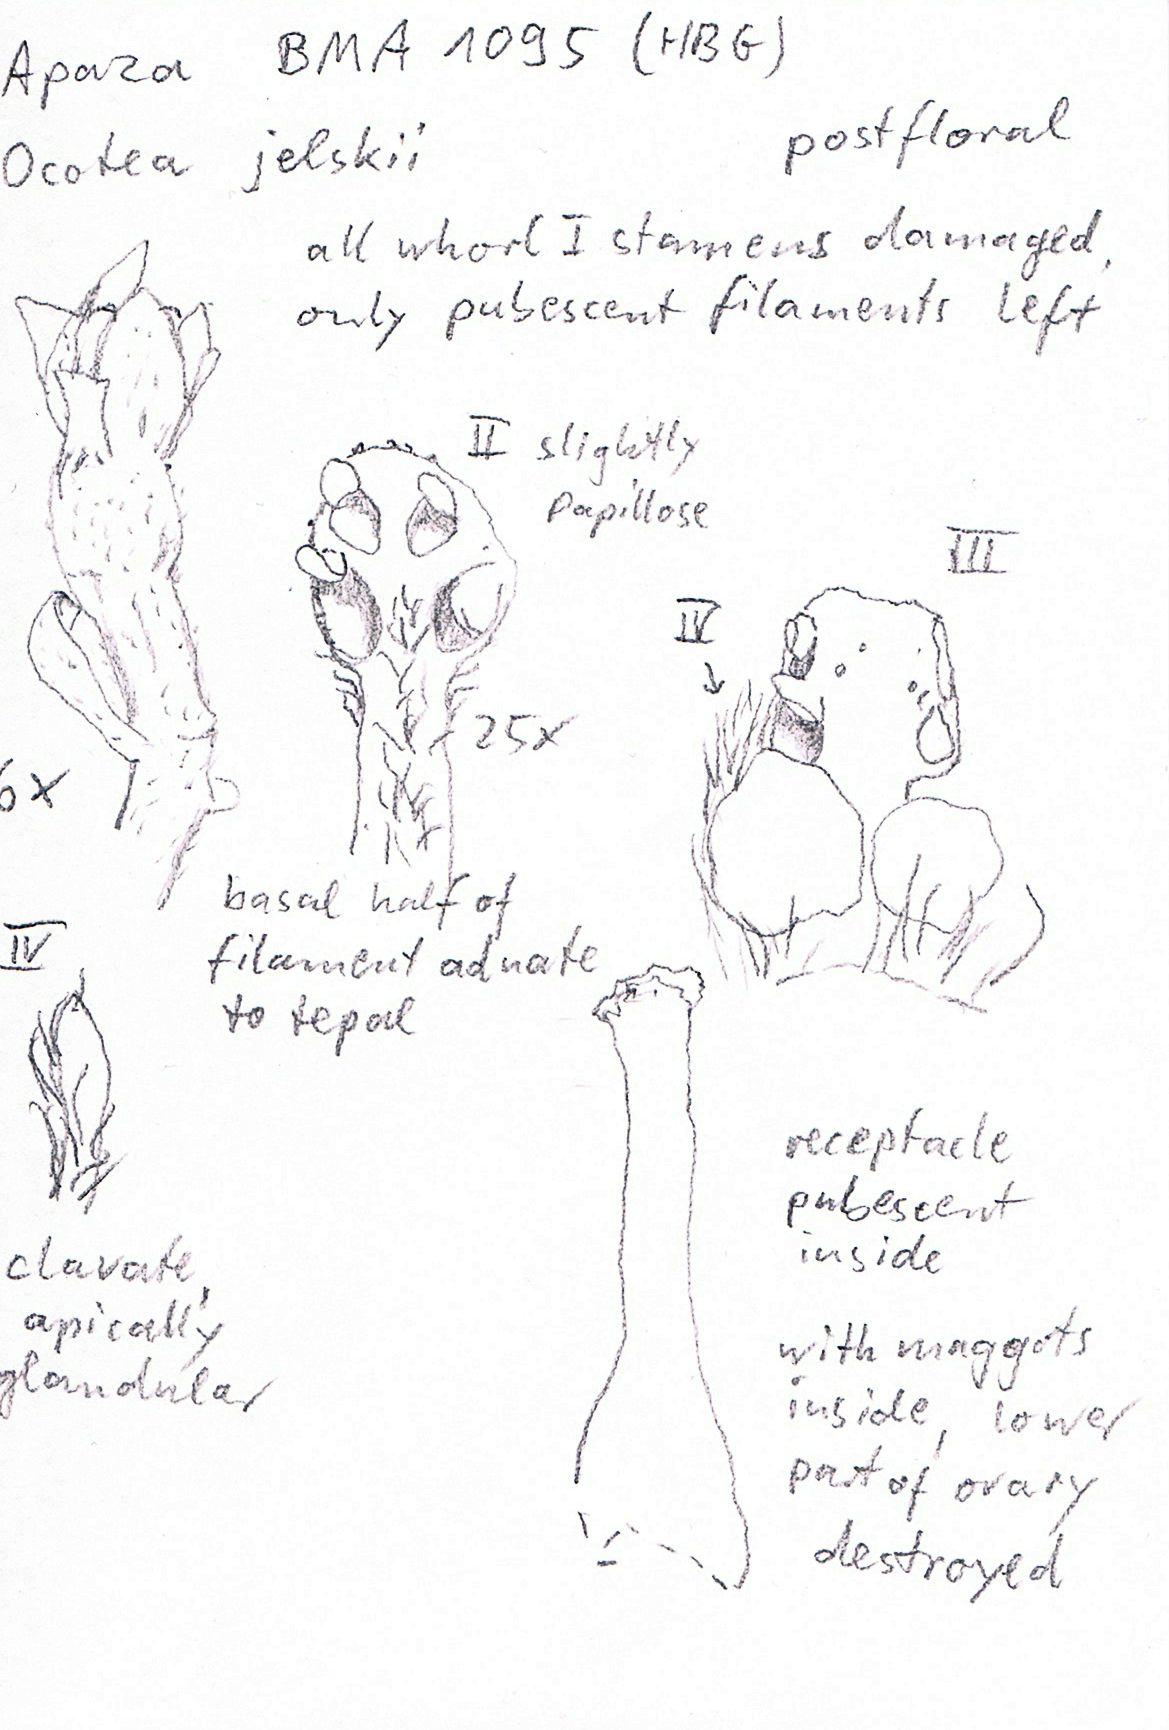 Apaza BMA 1095 (HBG)
Ocotea jelskii
postfloral
all whorl I stamens damaged,
only pubescent filaments left
II slightly
papillose
III
IV
25x
6x
basal half of
filament adnate
to tepal
IV
clavate,
apically
glandular
receptacle
pubescent
inside
with maggots
inside, lower
part of ovary
destroyed